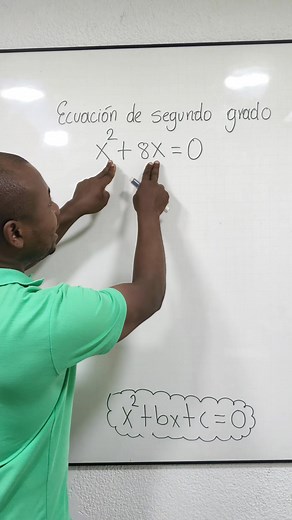 Ecuación de segundo grado
x² + 8x = 0
x² + bx + c = 0